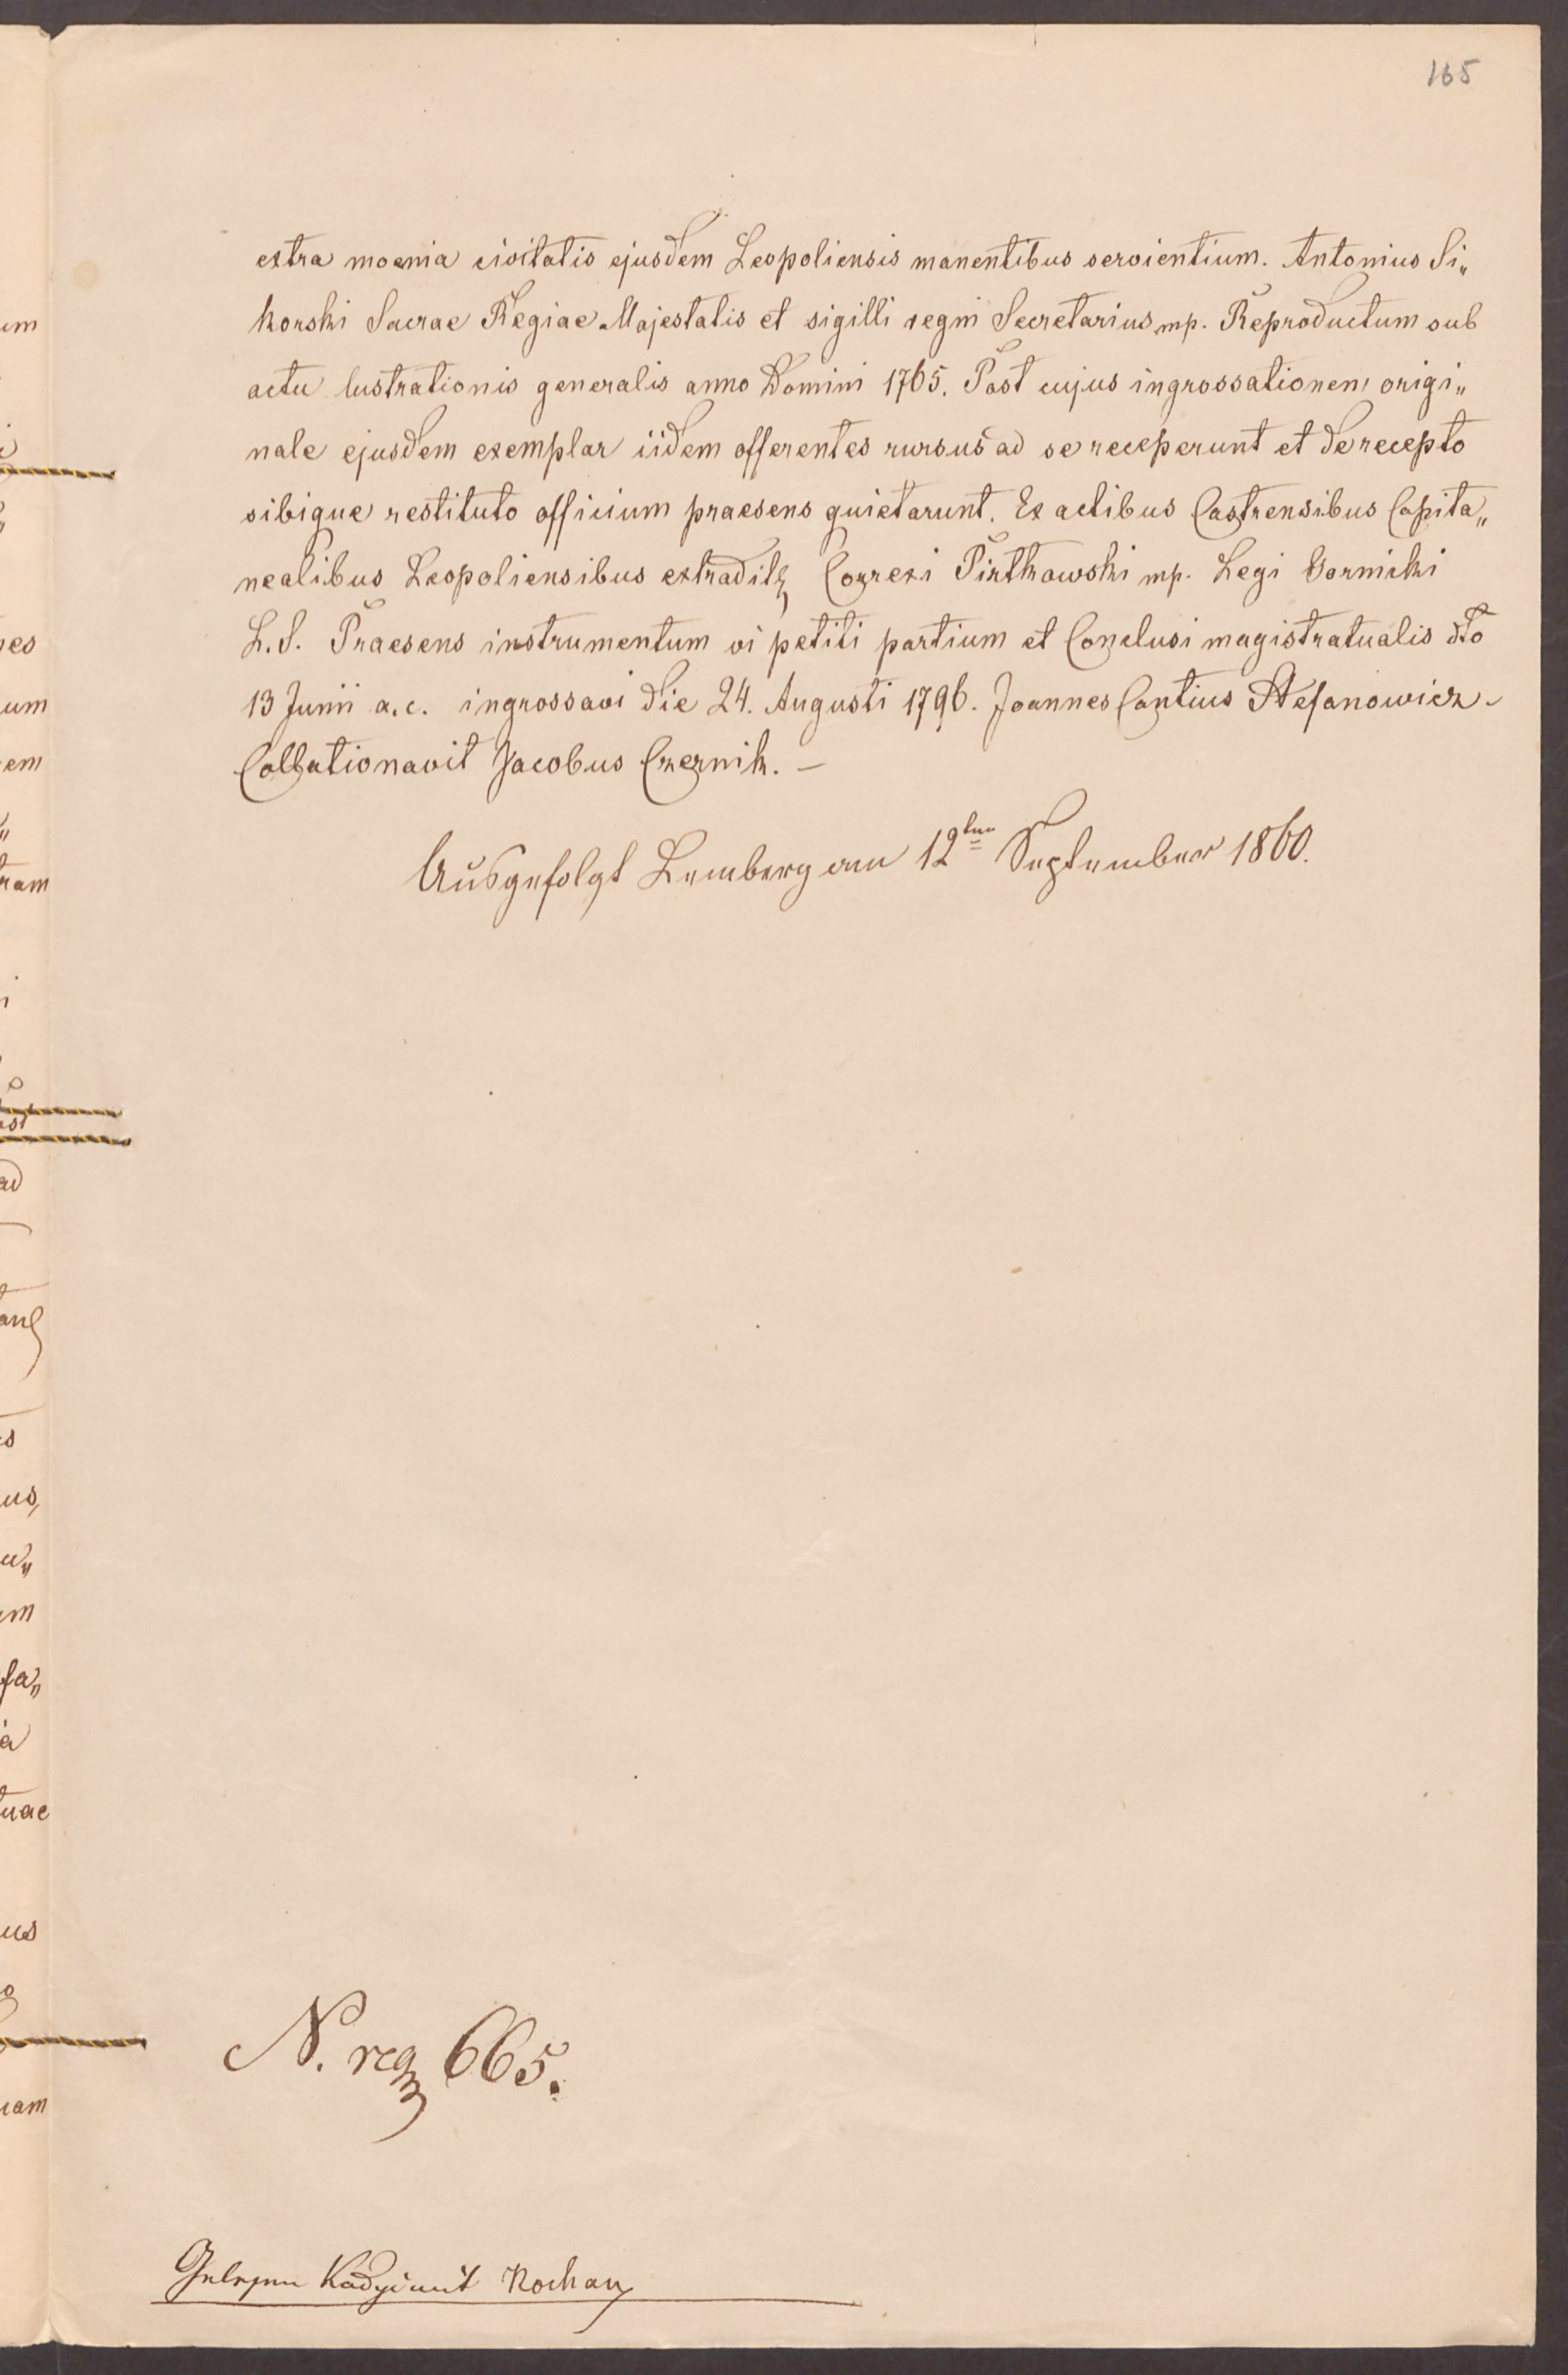 165
extra moenia civitatis ejusdem Leopoliensis manentibus servientium. Antonius Si„
korski Sacrae Regiae Majestatis et sigilli regni Secretarius mp. Reproductum sub
actu lustrationis generalis anno Domini 1765. Post cujus ingrossationem origi„
nale ejusdem exemplar iidem offerentes rursus ad se receperunt et de recepto
sibique restituto officium praesens quietarunt. Ex actibus Castrensibus Capita„
nealibus Leopoliensibus extradit Correxi mp. Legi Gornicki
L.S. Praesens instrumentum vi petiti partium et Conclusi magistratualis dto
13 Junii a.c. ingrossavi die 24. Augusti 1796. Joannes Cantius Stefanowicz –
Collationavit Jacobus Czernik. –
Ausgefolgt Lemberg am 12ten September 1860.
N. reg 665.
Gelesen Kochan
um
nes
um
em
ram
ad
us
um
fa„
tuae
us
iam